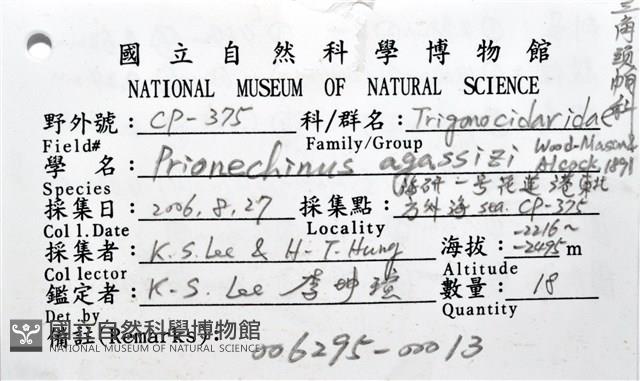 三角頭帽科
國立自然科學博物館
NATIONAL MUSEUM OF NATURAL SCIENCE
野外號：CP-375 科/群名：Trigonocidaridae
Field# Family/Group
學名：Prionechinus agassizi Wood-Mason & Alcock, 1891
Species 海研一号花蓮港東北
採集日：2006.8.27 採集點：方外海 sea. CP-375
Coll.Date Locality
採集者：K.S. Lee & H-T. Hung 海拔：-2216~-2495 m
Collector Altitude
鑑定者：K-S. Lee 李坤瑄 數量：18
Det.by Quantity
備註(Remarks)：006295-00013
國立自然科學博物館
NATIONAL MUSEUM OF NATURAL SCIENCE